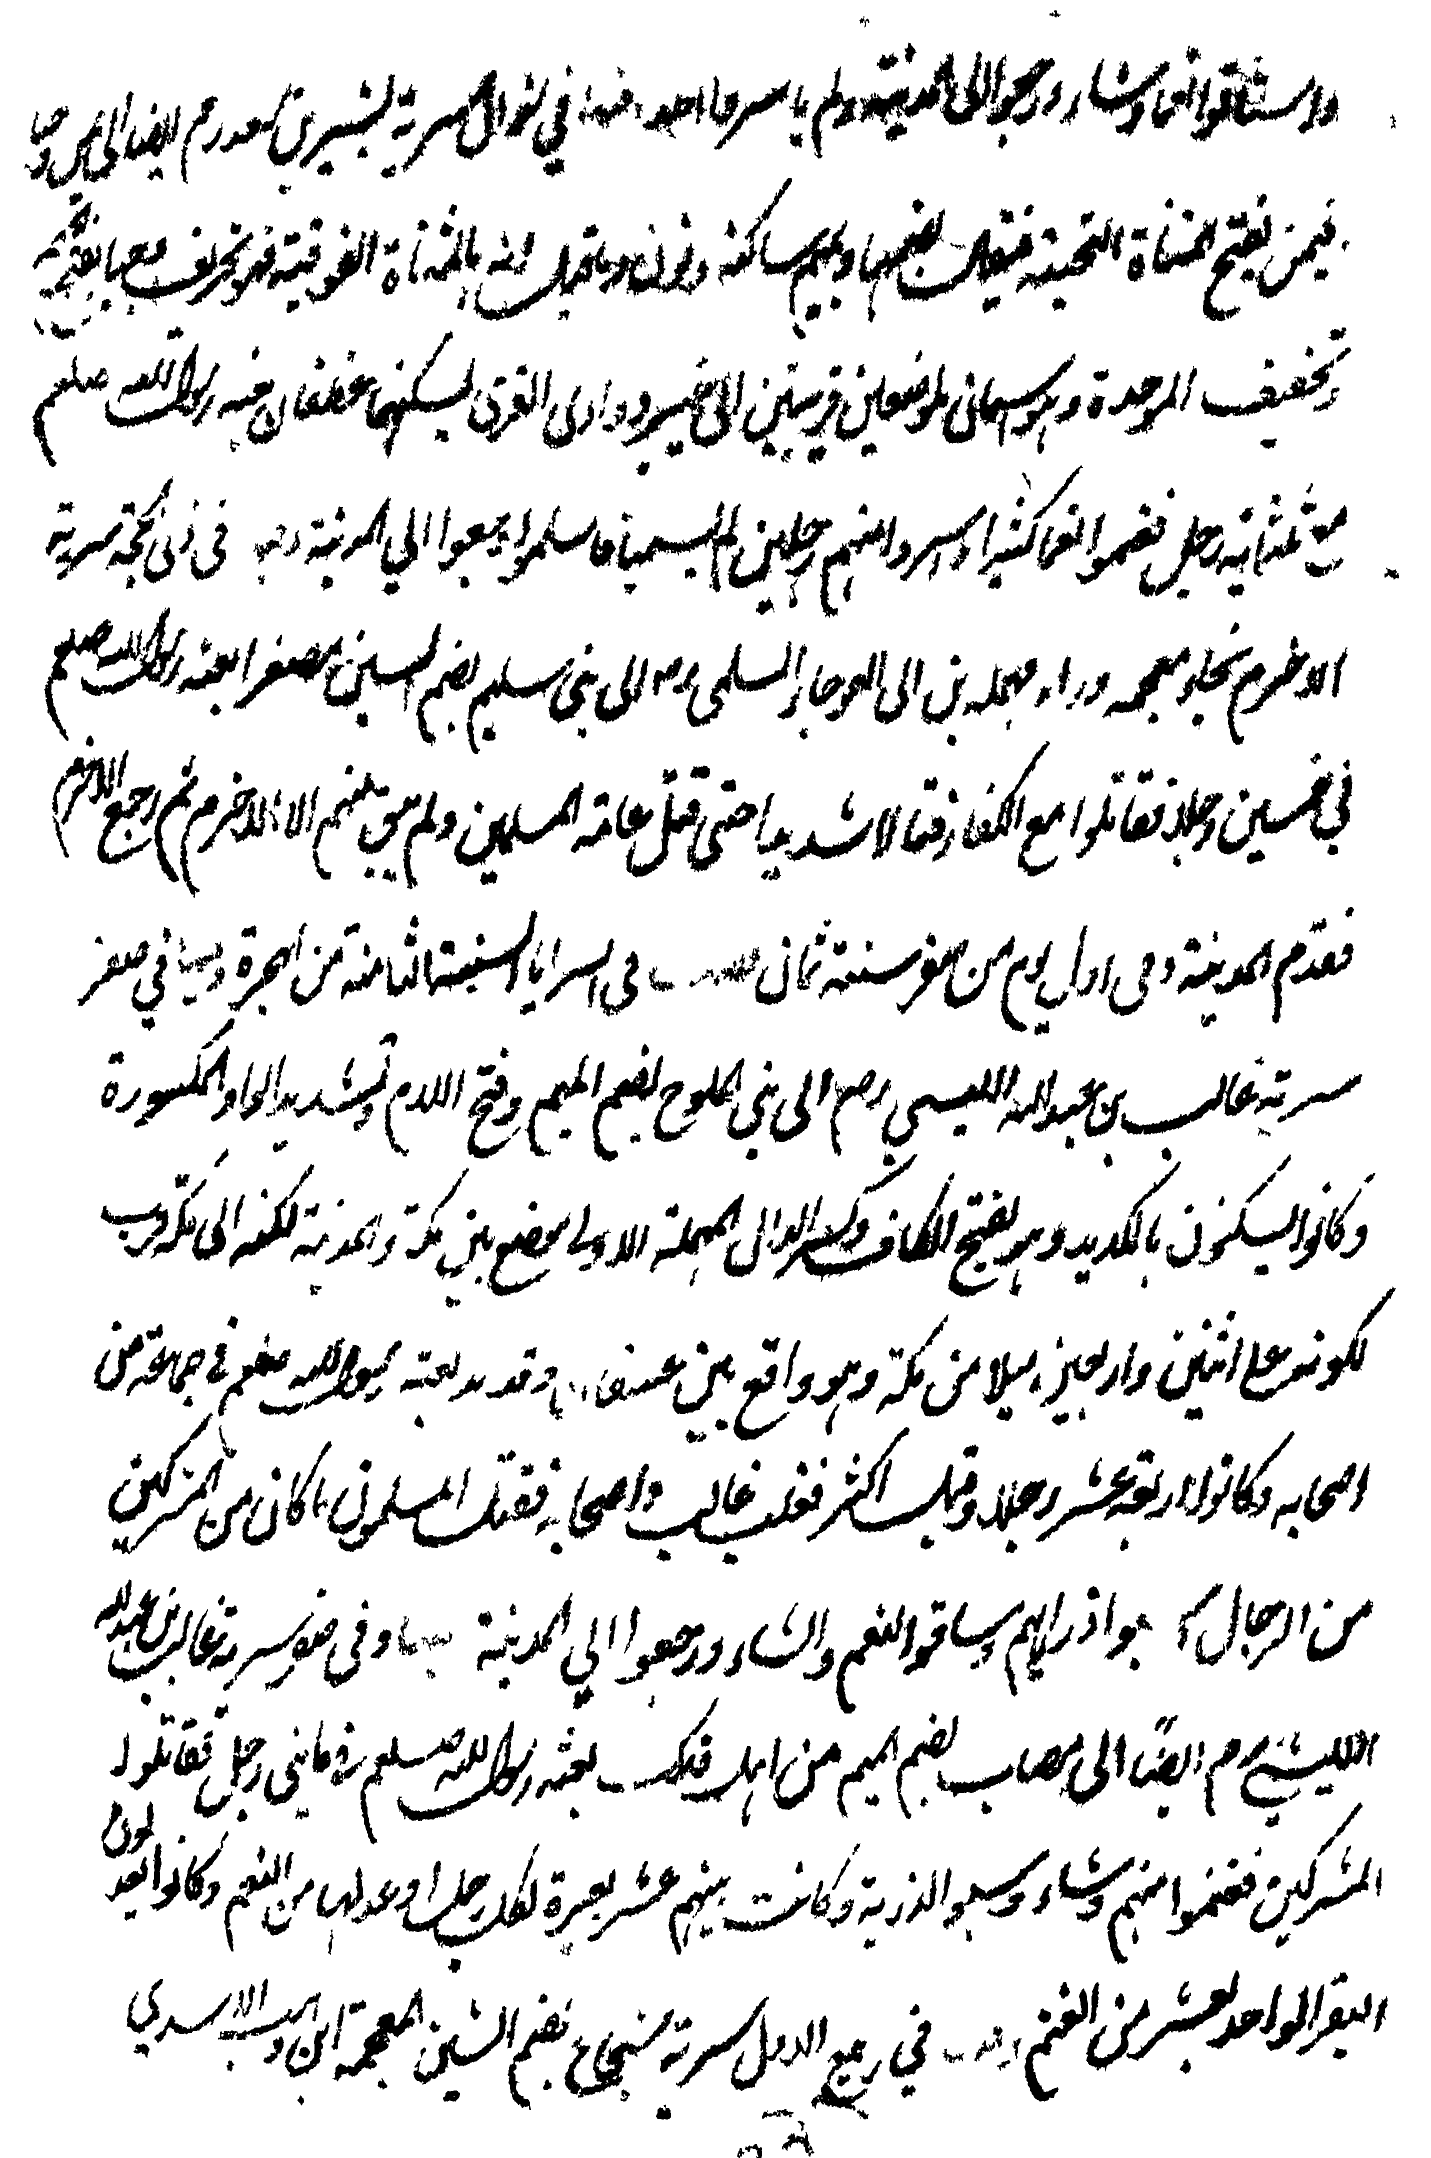 واستاقوا نعما وشاء ورجعوا الى المدينة ولم ياسروا احدا وفيها في شوال سرية بشير بن سعد رضـ ايضا الى يمن وجبار
فيمن بفتح المثناة التحتية فيقال بضمها وبميم ساكنة ونون وما قيل انه بالمثناة الفوقية فهو تحريف وجبا بفتح الجيم
وتخفيف الموحدة وهو اسمان لموضعين قريبتين الى خيبر ووادى القرى يسكنهما غطفان بعثه رسول الله صلعم
مع ثلثمائة رجل فغنموا نعما كثيرا واسروا منهم رجلين لم يسميا فاسلموا ورجعوا الي المدينة وفيها فى ذى الحجة سرية
الاخرم بخاء معجمة وراء مهملة بن ابى العوجاء السلمى رضـ الى بنى سليم بضم السين مصغرا بعثه رسول الله صلعم
في خمسين رجلا فقاتلوا مع الكفار قتالا شديدا حتى قتل عامة المسلمين ولم يبق منهم الا الاخرم ثم رجع الاخرم
فقدم المدينة فى اول يوم من صفر سنة ثمان فصل فى السرايا السنة الثامنة من الهجرة وفيها في صفر
سرية غالب بن عبد الله الليثي رضـ الى بني الملوح بضم الميم وفتح اللام وتشديد الواو المكسورة
وكانوا يسكنون بالكديد وهو بفتح الكاف وكسر الدال المهملة الاولى موضع بين مكة والمدينة لكنه الى مكة قريب
لكونه على اثنين واربعين ميلا من مكة وهو واقع بين عسفان وقديد بعثه رسول الله صلعم في جماعة من
اصحابه وكانوا اربعة عشر رجلا وقيل اكثر فغلب غالب واصحابه فقتل المسلمون ما كان من المشركين
من الرجال وسبوا ذراريهم وساقوا النعم والشاء ورجعوا الي المدينة وفيها وفى صفر سرية غالب بن عبد الله
الليثي رضـ ايضا الى مصاب بضم الميم من اهل فدك بعثه رسول الله صلعم في مايتي رجل فقاتلوا
المشركين فغنموا منهم وشاء وسبوا الذرية وكانت بينهم عشر بعيرة لكل رجل او عدلها من النعم وكانوا يعدلون
البقر الواحد بعشر من الغنم وفيها في ربيع الاول سرية شجاع بضم الشين المعجمة ابن وهب الاسدي